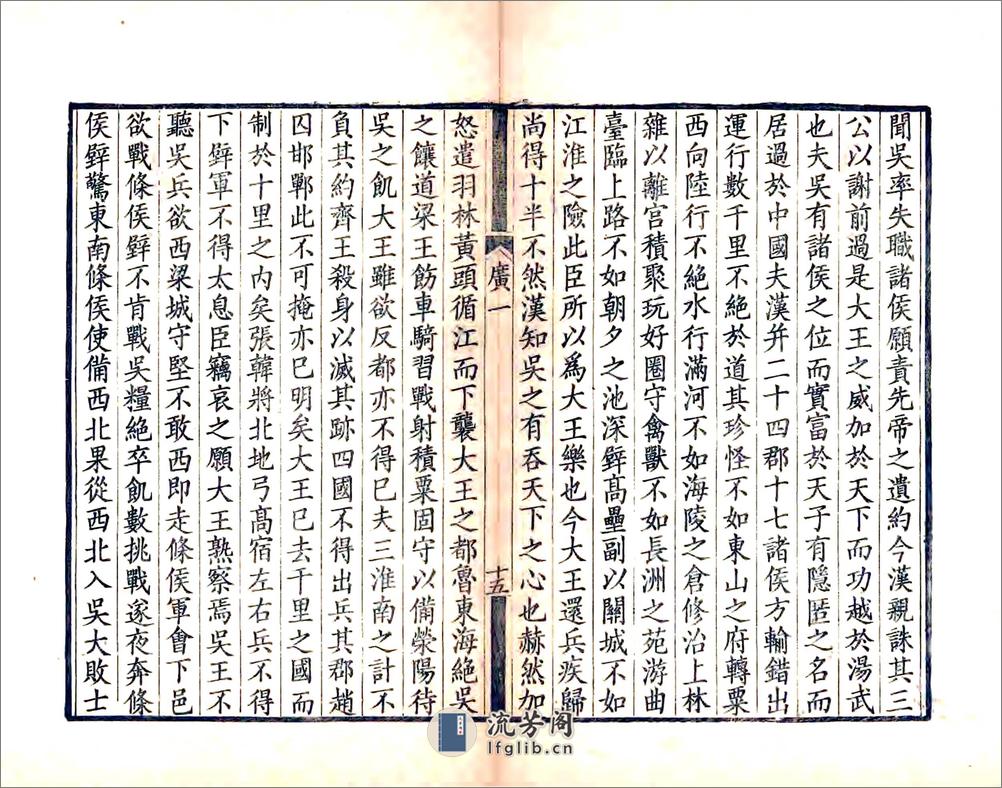 聞吳率失職諸侯願責先帝之遺約今漢親誅其三
公以謝前過是大王之威加於天下而功越於湯武
也夫吳有諸侯之位而實富於天子有隱匿之名而
居過於中國夫漢并二十四郡十七諸侯方輸錯出
運行數千里不絕於道其珍怪不如東山之府轉粟
西向陸行不絕水行滿河不如海陵之倉修治上林
雜以離宮積聚玩好圈守禽獸不如長洲之苑游曲
臺臨上路不如朝夕之池深壁高壘副以關城不如
江淮之險此臣所以爲大王樂也今大王還兵疾歸
尚得十半不然漢知吳之有吞天下之心也赫然加
廣一
十五
怒遣羽林黃頭循江而下襲大王之都魯東海絕吳
之饟道梁王飭車騎習戰射積粟固守以備滎陽待
吳之飢大王雖欲反都亦不得已夫三淮南之計不
負其約齊王殺身以滅其跡四國不得出兵其郡趙
囚邯鄲此不可掩亦已明矣大王已去千里之國而
制於十里之內矣張韓將北地弓高宿左右兵不得
下壁軍不得太息臣竊哀之願大王熟察焉吳王不
聽吳兵欲西梁城守堅不敢西即走條侯軍會下邑
欲戰條侯壁不肯戰吳糧絕卒飢數挑戰遂夜奔條
侯壁驚東南條侯使備西北果從西北入吳大敗士
流芳阁
lfglib.cn